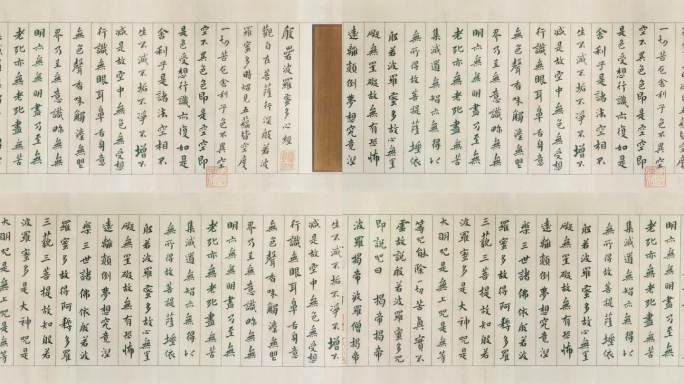 般若波羅蜜多心經
觀自在菩薩行深般若波
羅蜜多時照見五蘊皆空度
一切苦厄舍利子色不異空
空不異色色即是空空即
是色受想行識亦復如是
舍利子是諸法空相不
生不滅不垢不淨不增不
減是故空中無色無受想
行識無眼耳鼻舌身意
無色聲香味觸法無眼
界乃至無意識界無無
明亦無無明盡乃至無
老死亦無老死盡無苦
一切苦厄舍利子色不異空
空不異色色即是空空即
是色受想行識亦復如是
舍利子是諸法空相不
生不滅不垢不淨不增不
減是故空中無色無受想
行識無眼耳鼻舌身意
無色聲香味觸法無眼
界乃至無意識界無無
明亦無無明盡乃至無
老死亦無老死盡無苦
集滅道無智亦無得以
無所得故菩提薩埵依
般若波羅蜜多故心無罣
礙無罣礙故無有恐怖
遠離顛倒夢想究竟涅
生不滅不垢不淨不增不
減是故空中無色無受想
行識無眼耳鼻舌身意
無色聲香味觸法無眼
界乃至無意識界無無
明亦無無明盡乃至無
老死亦無老死盡無苦
集滅道無智亦無得以
無所得故菩提薩埵依
般若波羅蜜多故心無罣
礙無罣礙故無有恐怖
遠離顛倒夢想究竟涅
槃三世諸佛依般若波
羅蜜多故得阿耨多羅
三藐三菩提故知般若
波羅蜜多是大神咒是
大明咒是無上咒是無等
明亦無無明盡乃至無
老死亦無老死盡無苦
集滅道無智亦無得以
無所得故菩提薩埵依
般若波羅蜜多故心無罣
礙無罣礙故無有恐怖
遠離顛倒夢想究竟涅
槃三世諸佛依般若波
羅蜜多故得阿耨多羅
三藐三菩提故知般若
波羅蜜多是大神咒是
大明咒是無上咒是無等
等咒能除一切苦真實不
虛故說般若波羅蜜多咒
即說咒曰 揭帝揭帝
波羅揭帝波羅僧揭帝